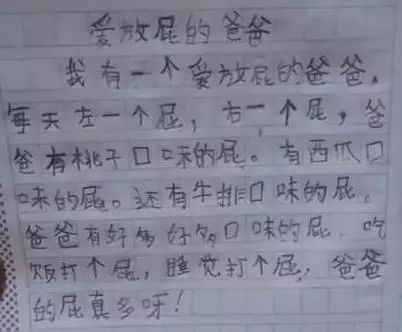 爱放屁的爸爸
我有一个爱放屁的爸爸，
每天左一个屁，右一个屁，爸
爸有桃子口味的屁。有西瓜口
味的屁。还有牛排口味的屁。
爸爸有好多好多口味的屁。吃
饭打个屁，睡觉打个屁，爸爸
的屁真多呀！